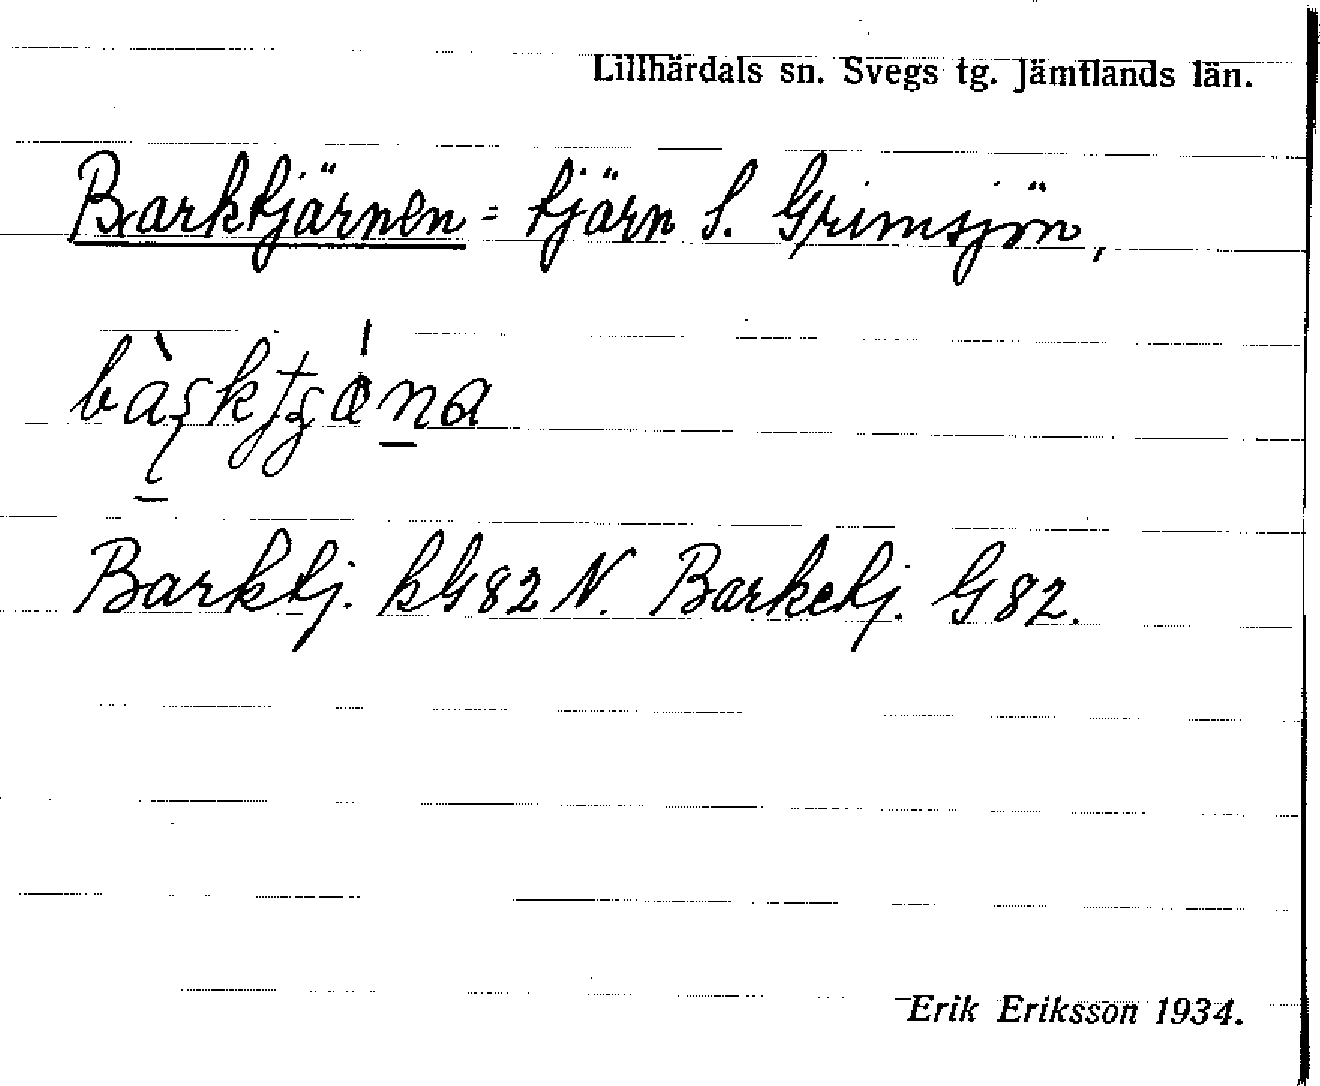 Lillhärdals sn. Svegs tg. Jämtlands län.
Barktjärnen = tjärn S. Grimsjön,
Barktj. kG82 N. Barketj. G82.
Erik Eriksson 1934.